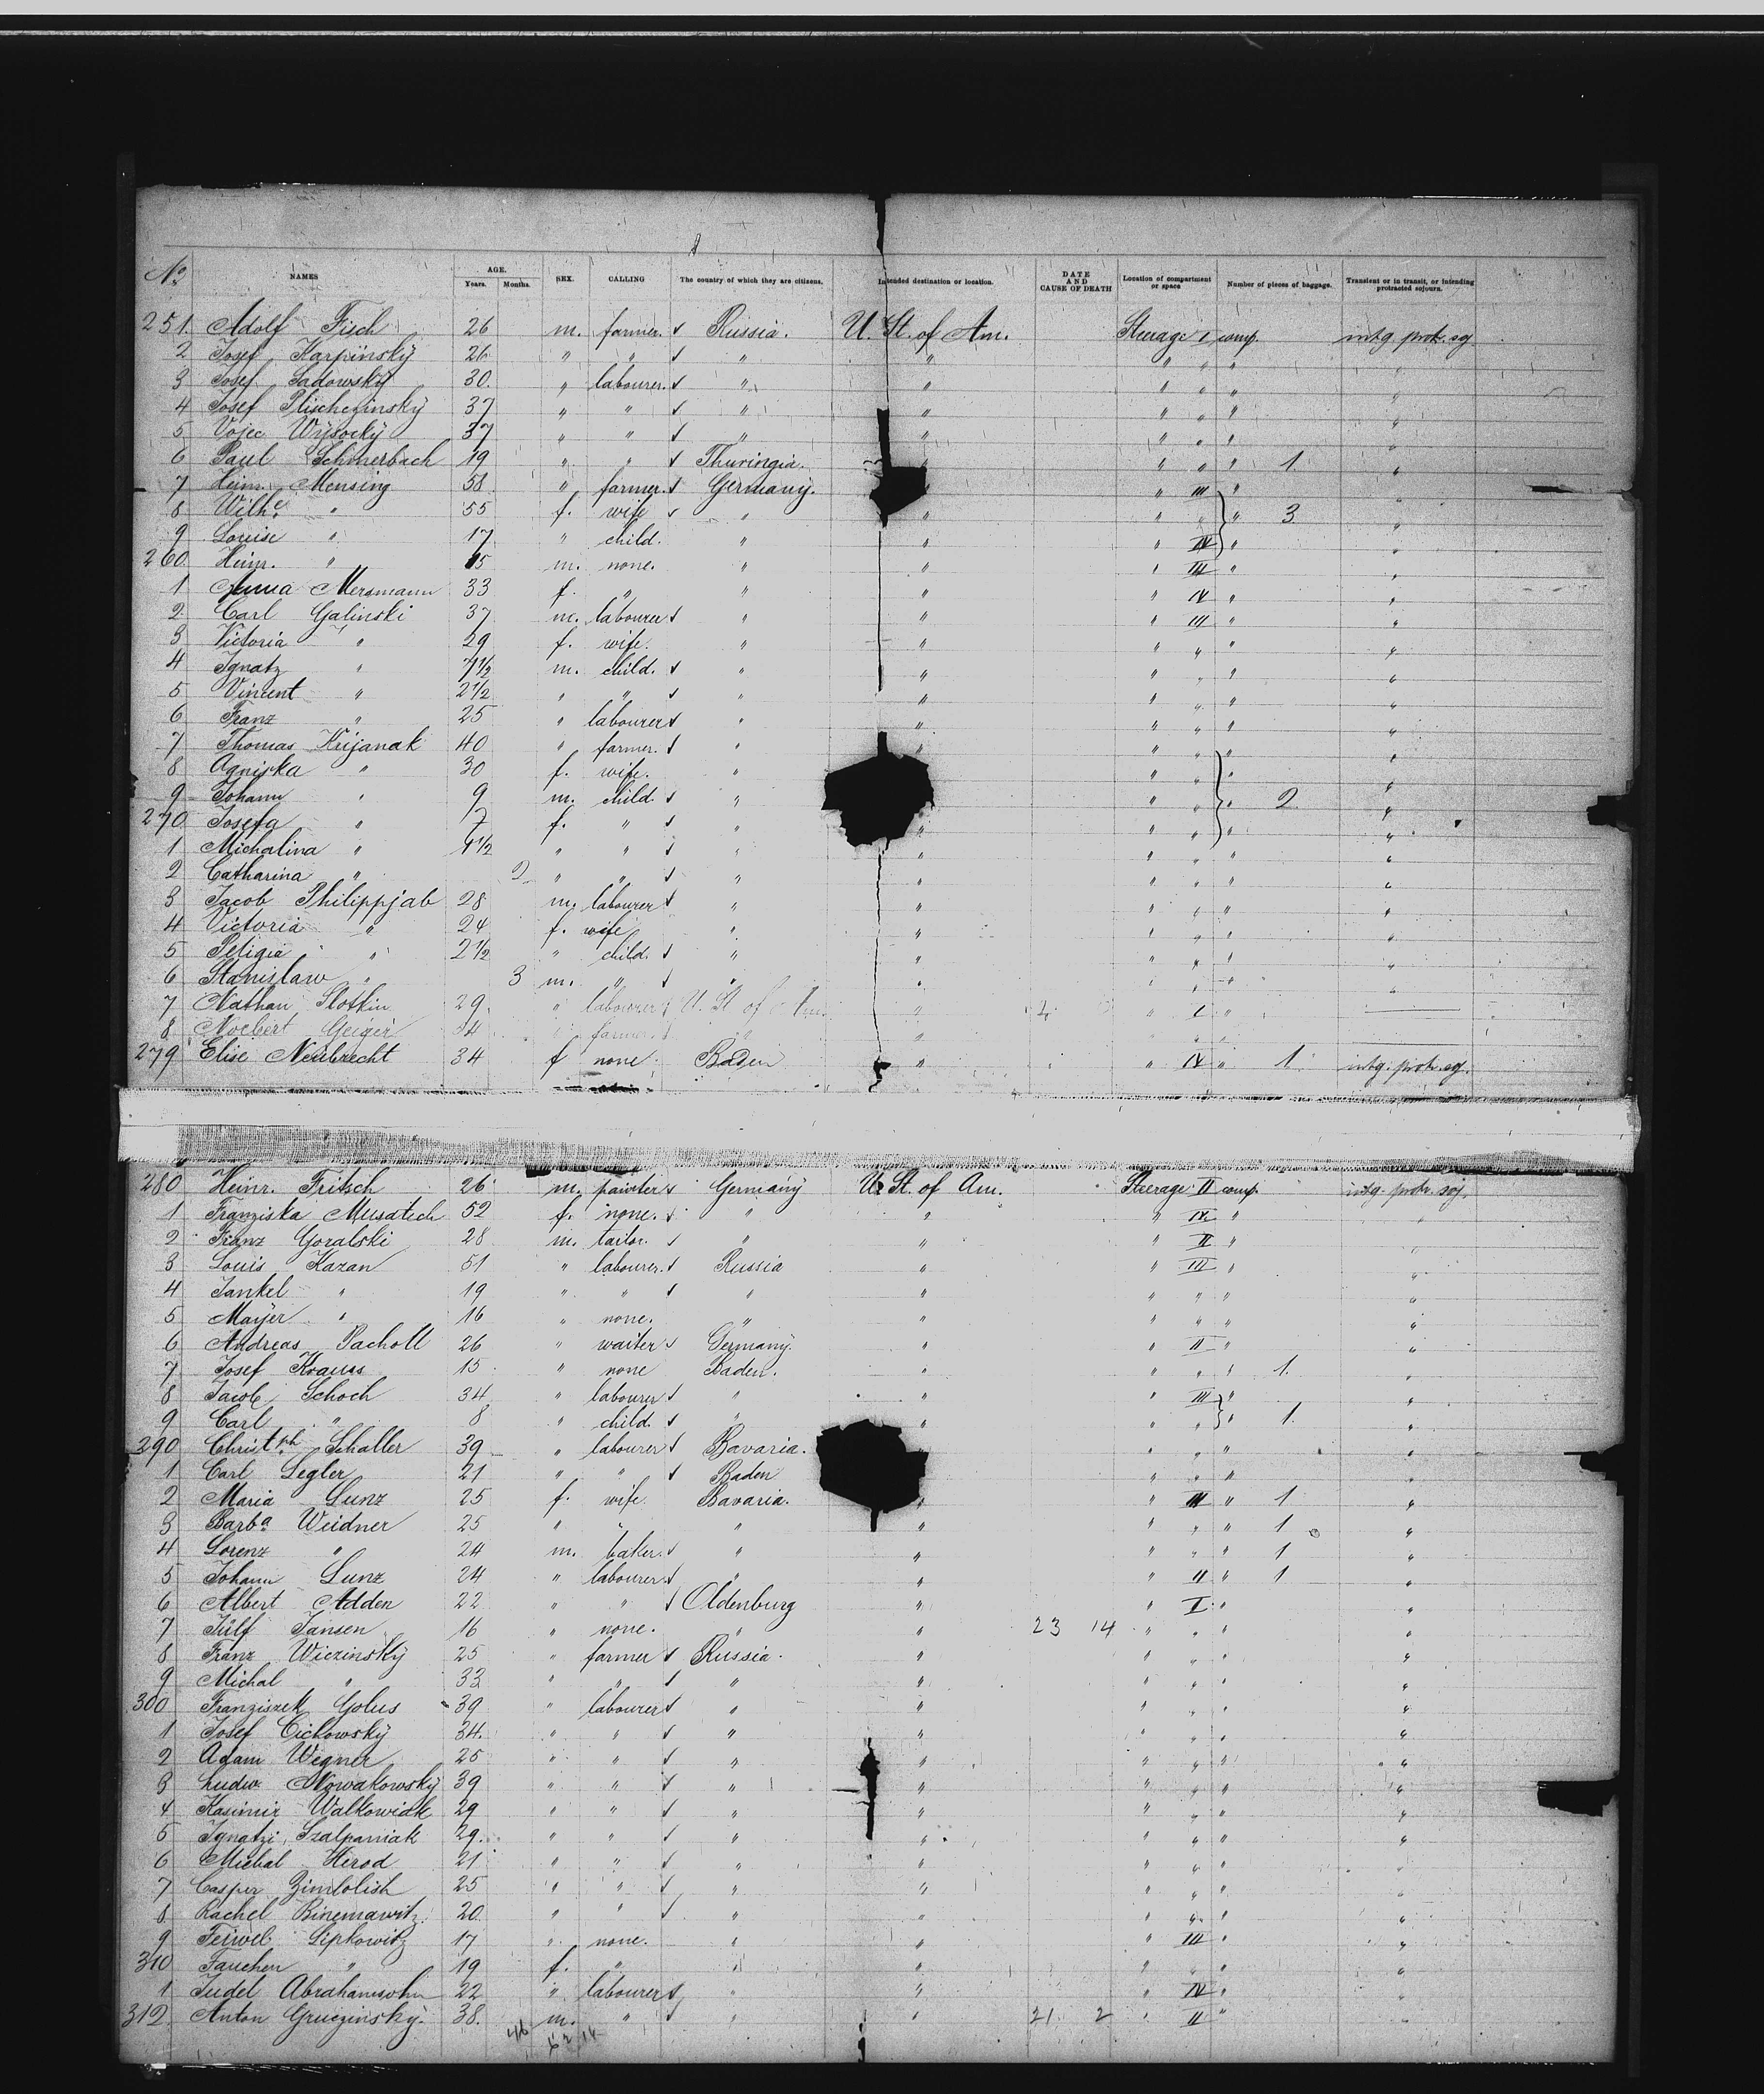 No. NAMES AGE. Years. Months. SEX. CALLING The country of which they are citizens. Intended destination or location. DATE AND CAUSE OF DEATH Location of compartment or space Number of pieces of baggage. Transient or in transit, or intending protracted sojourn.
251. Adolf Fisch 26 m. farmer. Russia. U. St. of Am. Steerage I comp. intg. protr. sg
2 Josef Karpinsky 26 " " " " " " " "
3 Josef Sadowsky 30. " labourer. " " " " " "
4 Josef Plischezinsky 37 " " " " " " " "
5 Vojec Wysocky 37 " " " " " " " "
6 Paul Schmerbach 19 " " Thuringia. " " " 1. "
7 Heinr. Mensing 58 " farmer. Germany. " III " "
8 Wilhe. " 55 f. wife " " " " " 3 "
9 Louise " 17 " child. " " " IV " "
260 Heinr. " 15 m. none. " " " III " "
1 Anna Mersmann 33 f. " " " " IV " "
2 Carl Galinski 37 m. labourer " " " III " "
3 Victoria " 29 f. wife. " " " " " "
4 Ignatz " 7 1/2 m. child. " " " " " "
5 Vincent " 2 1/2 " " " " " " " "
6 Franz " 25 " labourer " " " " " "
7 Thomas Krijanak 40 " farmer. " " " " " "
8 Agniska " 30 f. wife. " " " " "
9 Johann " 9 m. child. " " " " 2 "
270 Josefa " 7 f. " " " " " " "
1 Michalina " 4 1/2 " " " " " " " "
2 Catharina " 2 " " " " " " " "
3 Jacob Philippjab 28 m. labourer " " " " " "
4 Victoria " 24 f. wife " " " " " "
5 Peligia " 2 1/2 " child. " " " " " "
6 Stanislaw " 3 m. " " " " " " "
7 Nathan Slotkin 29. " labourer U. St of Am. " " I "
8 Norbert Geiger 34 " farmer. " " " " "
279 Elise Neubrecht 34 f none. Baden " " IV " 1. intg. protr. sg.
280 Heinr. Fritsch 26 m. painter Germany U. St. of Am. Steerage II comp. intg. protr. soj.
1 Franziska Musatech 52 f. none. " " " IV " "
2 Franz Goralski 28 m. tailor. " " " II " "
3 Louis Kazan 51 " labourer. Russia " " III " "
4 Jankel " 19 " " " " " " " "
5 Mayer " 16 " none. " " " " " "
6 Andreas Pacholl 26 " waiter Germany. " " II " "
7 Josef Krauss 15 " none Baden. " " " " 1. "
8 Jacob Schoch 34 " labourer " " " III " "
9 Carl " 8 " child. " " " " " 1. "
290 Christph. Schaller 39 " labourer Bavaria. " " " "
1 Carl Segler 21 " " Baden " " " "
2 Maria Lunz 25 f. wife. Bavaria. " " III " 1 "
3 Barba. Weidner 25 " " " " " " " 1 "
4 Lorenz " 24 m. baker. " " " " " 1 "
5 Johann Lunz 24 " labourer " " " II " 1 "
6 Albert Adden 22 " " Oldenburg " " I " "
7 Jülf Jansen 16 " none. " " 23 14 " " " "
8 Franz Wiezinsky 25 " farmer Russia. " " " " "
9 Michal " 33 " " " " " " " "
300 Franziszek Golus 39 " labourer " " " " " "
1 Josef Cichowsky 34. " " " " " " " "
2 Adam Wegner 25 " " " " " " " "
3 Ludw. Nowakowsky 39 " " " " " " " "
4 Kasimir Walkowiak 29 " " " " " " " "
5 Ignatzi Szalpaniak 29. " " " " " " " "
6 Michal Herod 21 " " " " " " " "
7 Casper Zimbolish 25 " " " " " " " "
8 Rachel Binemawitz. 20. " " " " " " " "
9 Feiwel Lipkowitz 17 " none. " " " III " "
310 Fauchen " 19 f. " " " " " " "
1 Judel Abrahamsohn 22 " labourer " " " IV " "
312. Anton Gruezinsky. 38. m. " " " 21 2 " II "